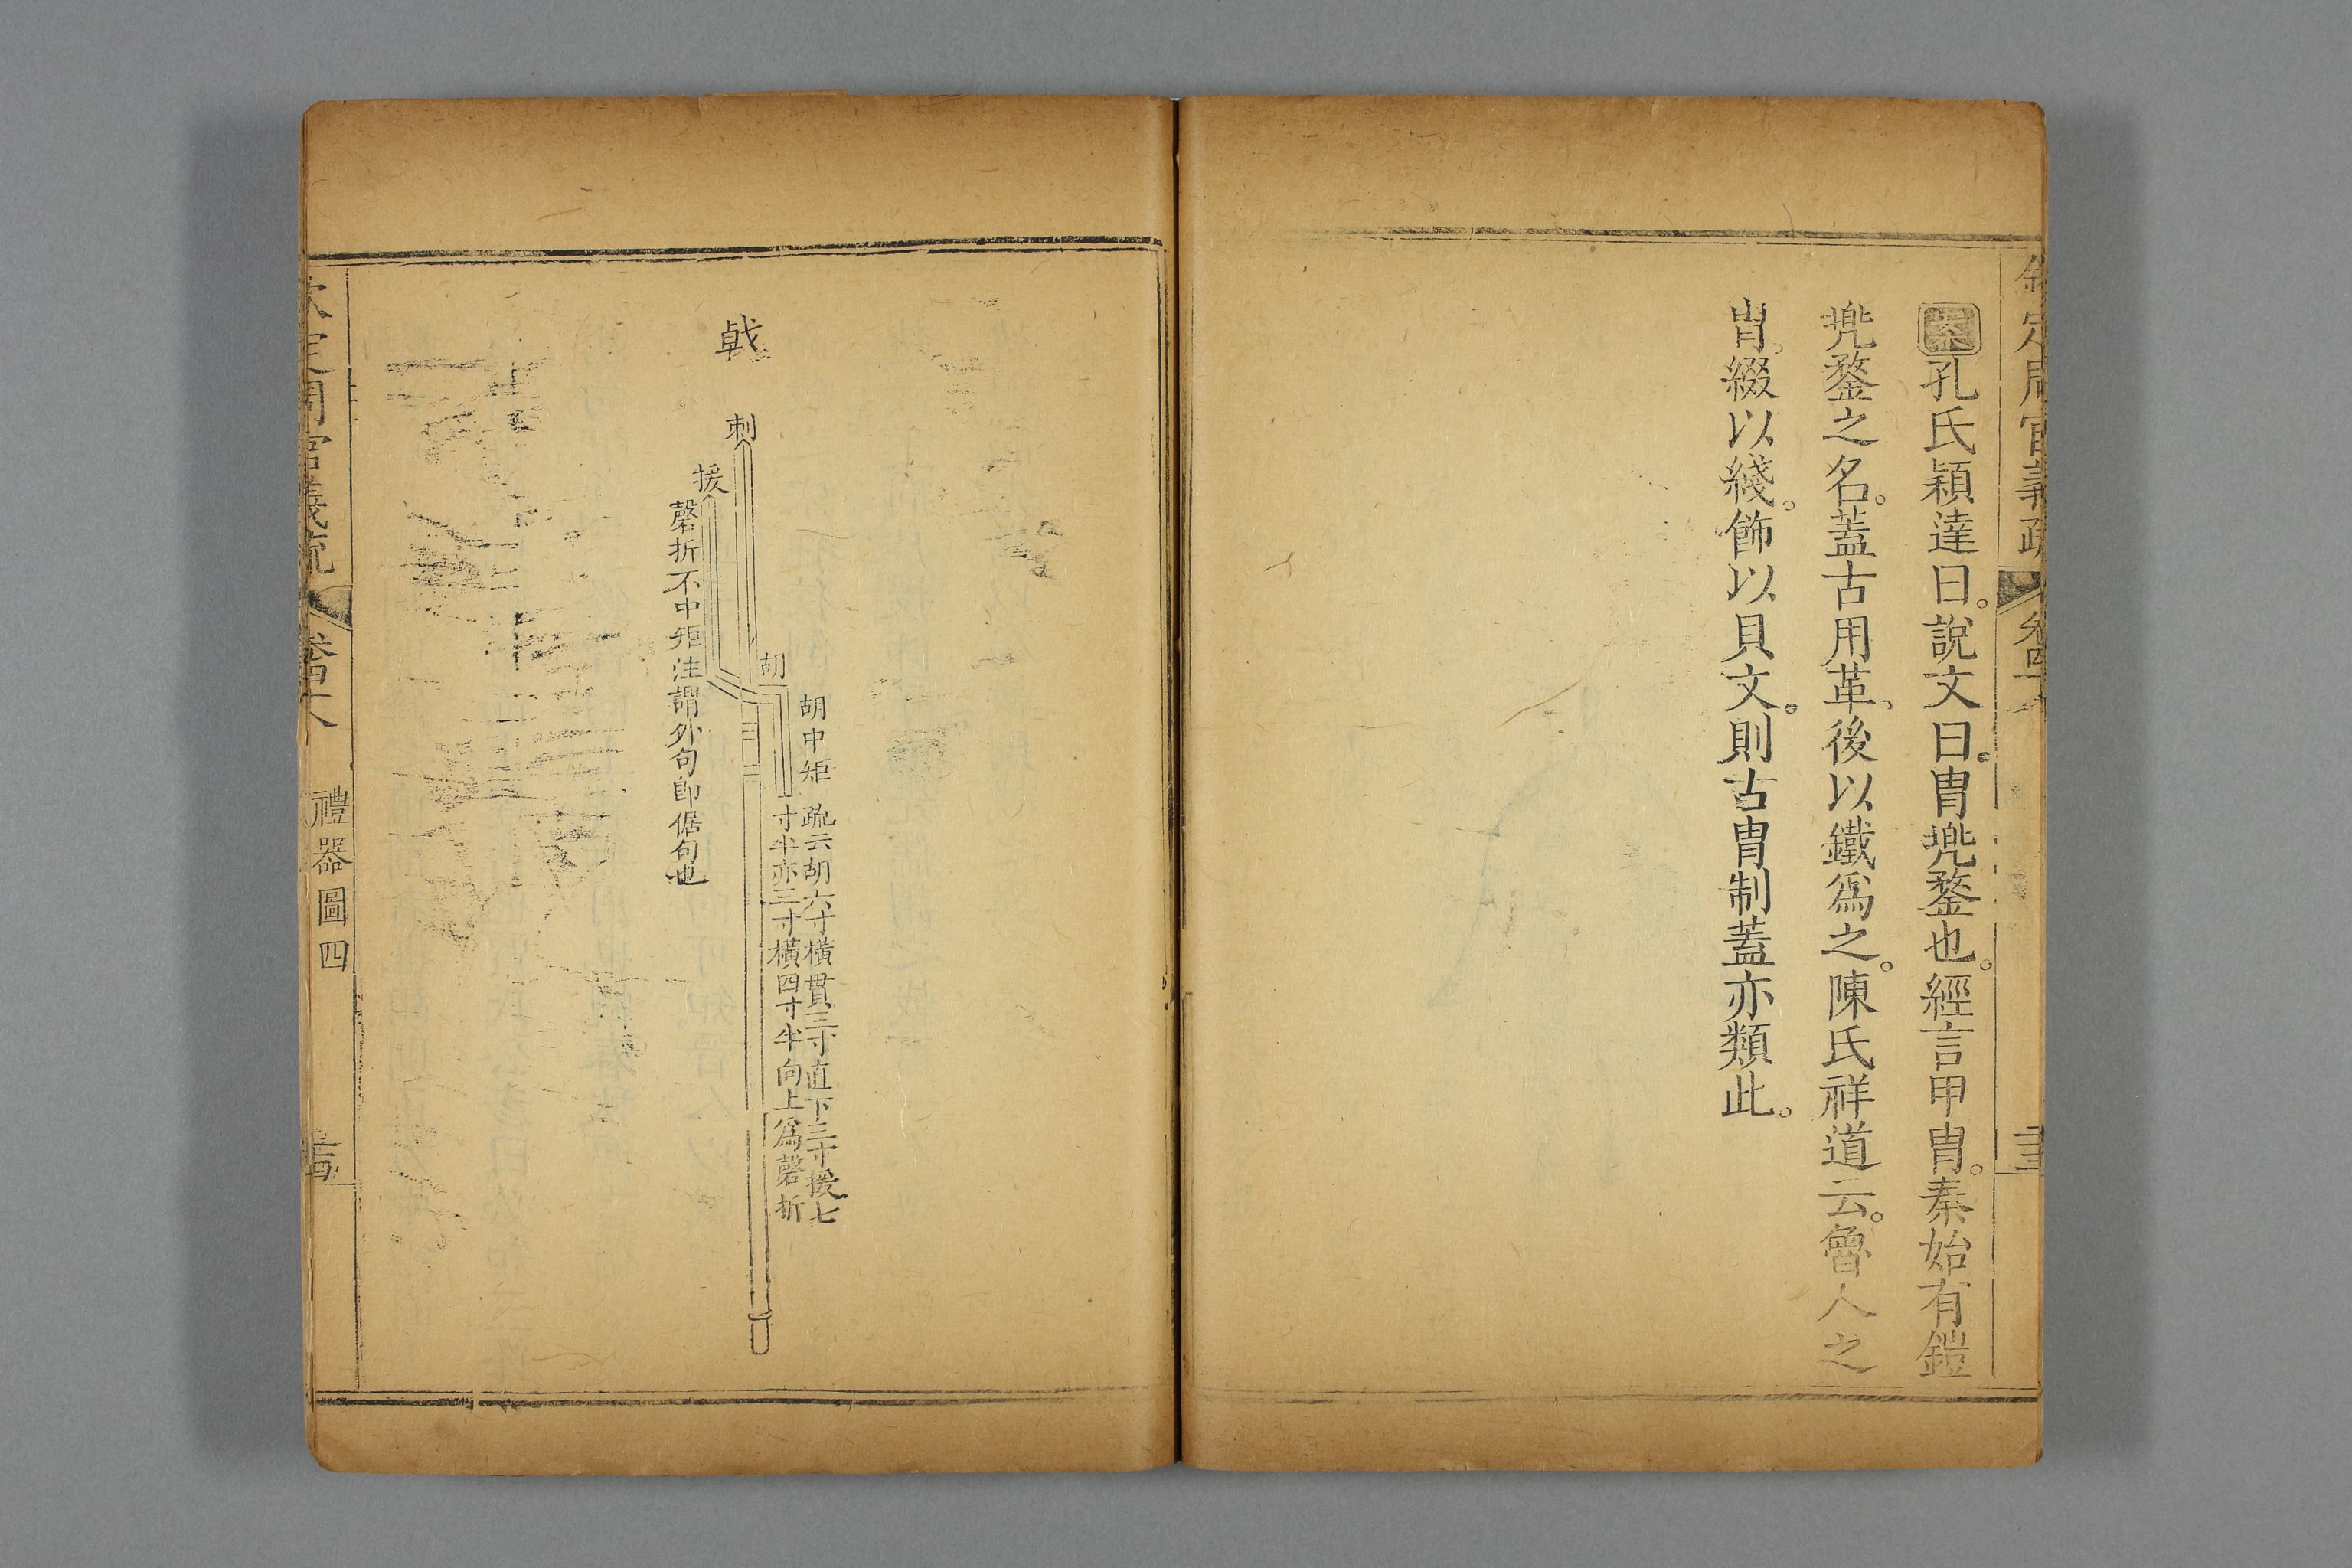 欽定周官義疏
卷四十八
案孔氏穎達曰。說文曰。胄兠鍪也。經言甲胄。秦始有鎧
兠鍪之名。蓋古用革、後以鐵爲之。陳氏祥道云。魯人之
胄。綴以綫。飾以貝文。則古胄制蓋亦類此。
戟
刺
援
胡
胡中矩
疏云胡六寸橫貫三寸直下三寸援七
寸半亦三寸橫四寸半向上爲磬折
磬折不中矩注謂外句卽倨句也
欽定周官義疏
卷四十八
禮器圖四